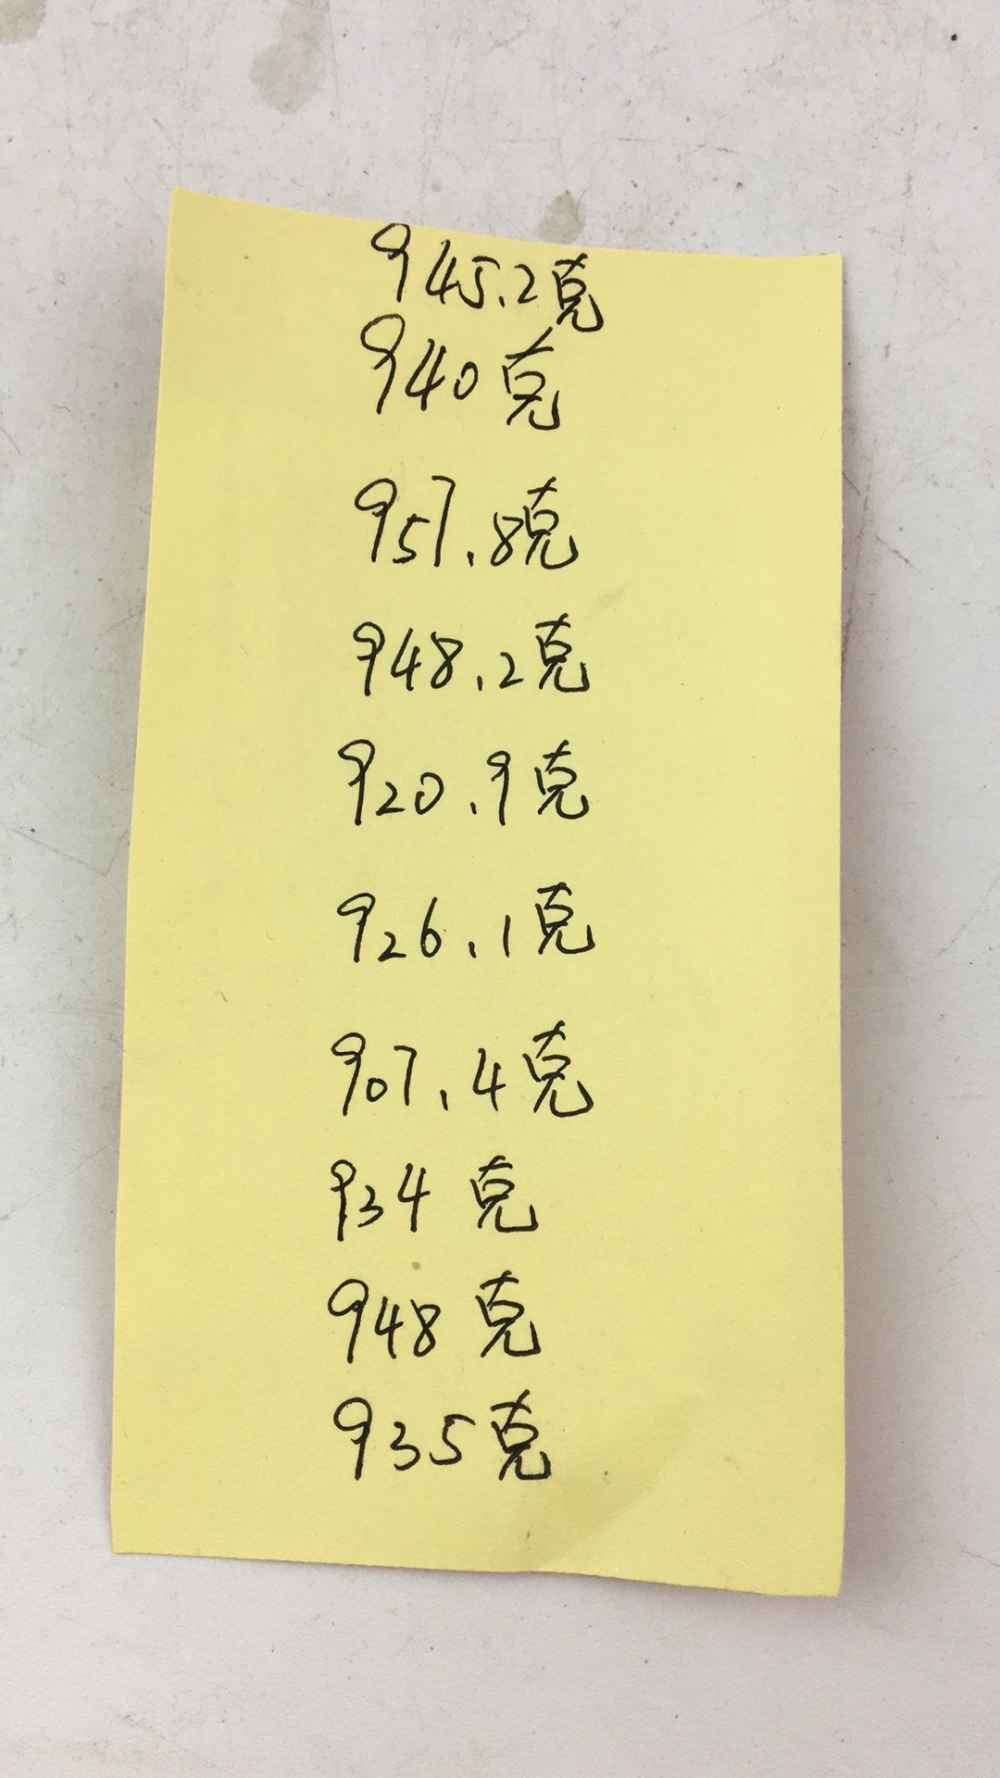 945.2克
940克
957.8克
948.2克
920.9克
926.1克
907.4克
934克
948克
935克